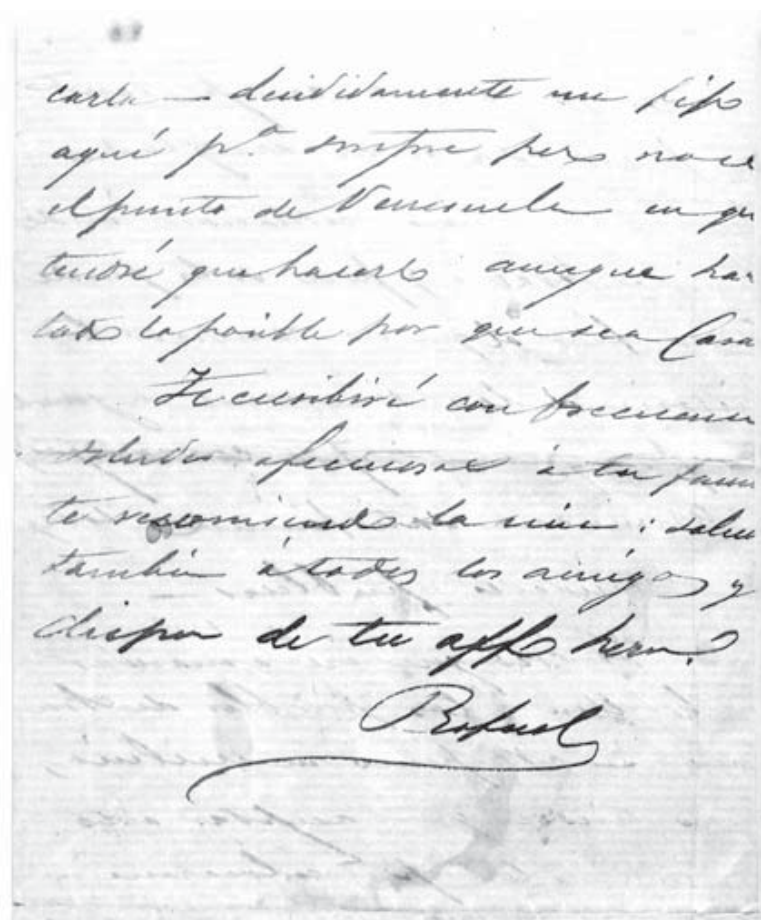 carta — decididamente me fijo
aquí pª. siempre pero no sé
el punto de Venezuela en qu
tendré que hacerlo: aunque ha
todo lo posible por que sea Cara
Te escribiré con frecuencia
saludos afectuosos á tu fami
te recomiendo la mia: salu
tambien á todos los amigos y
dispon de tu affº herm.º
Rafael